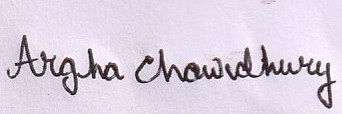 Argha Chowdhury